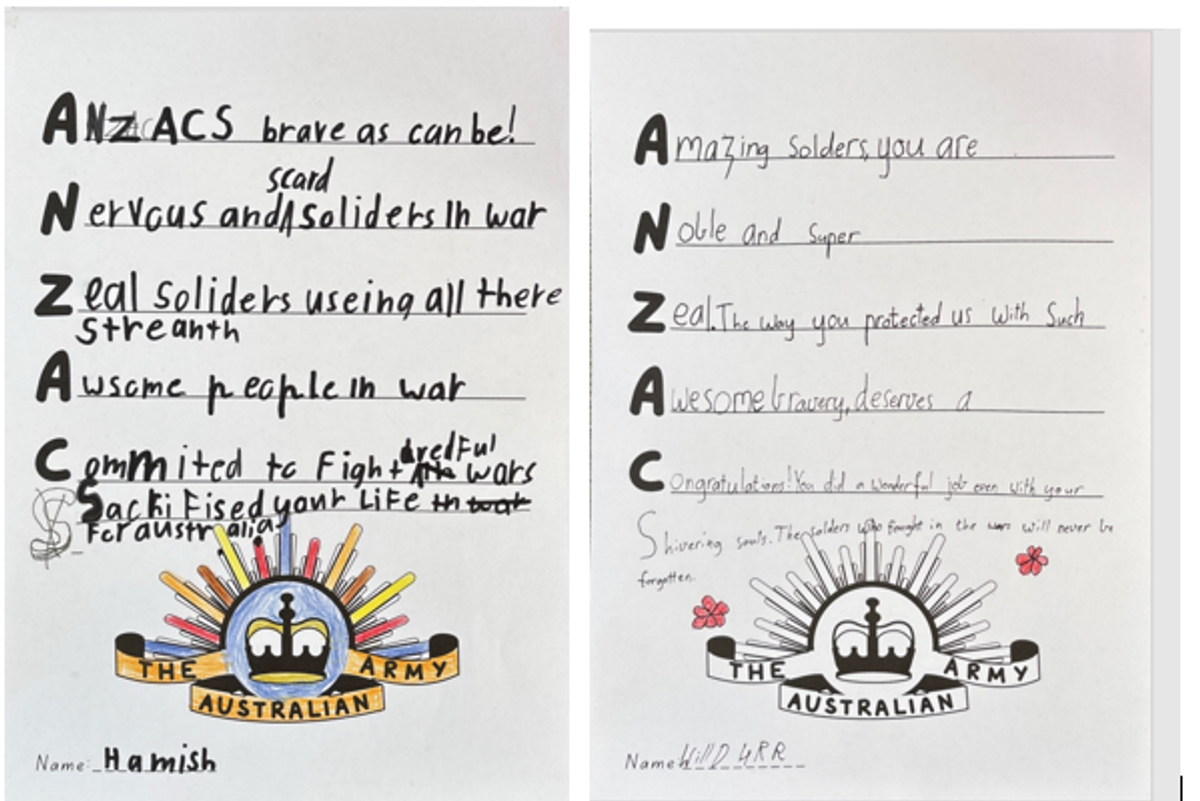 ANZACS brave as can be!
scard
Nervous and soliders in war
Zeal soliders useing all there
streanth
Awsome people in war
dredful
Committed to Fight the wars
Sacki Fised your LiFE in war
For australia
THE ARMY
AUSTRALIAN
Name: Hamish
Amazing Solders, you are
Noble and Super
Zeal. The way you protected us with Such
Awesome bravery, deserves a
Congratulations! You did a wonderful job even with your
Shivering souls. The solders who fought in the wars will never be
forgotten.
THE ARMY
AUSTRALIAN
Name: Will D 4RR